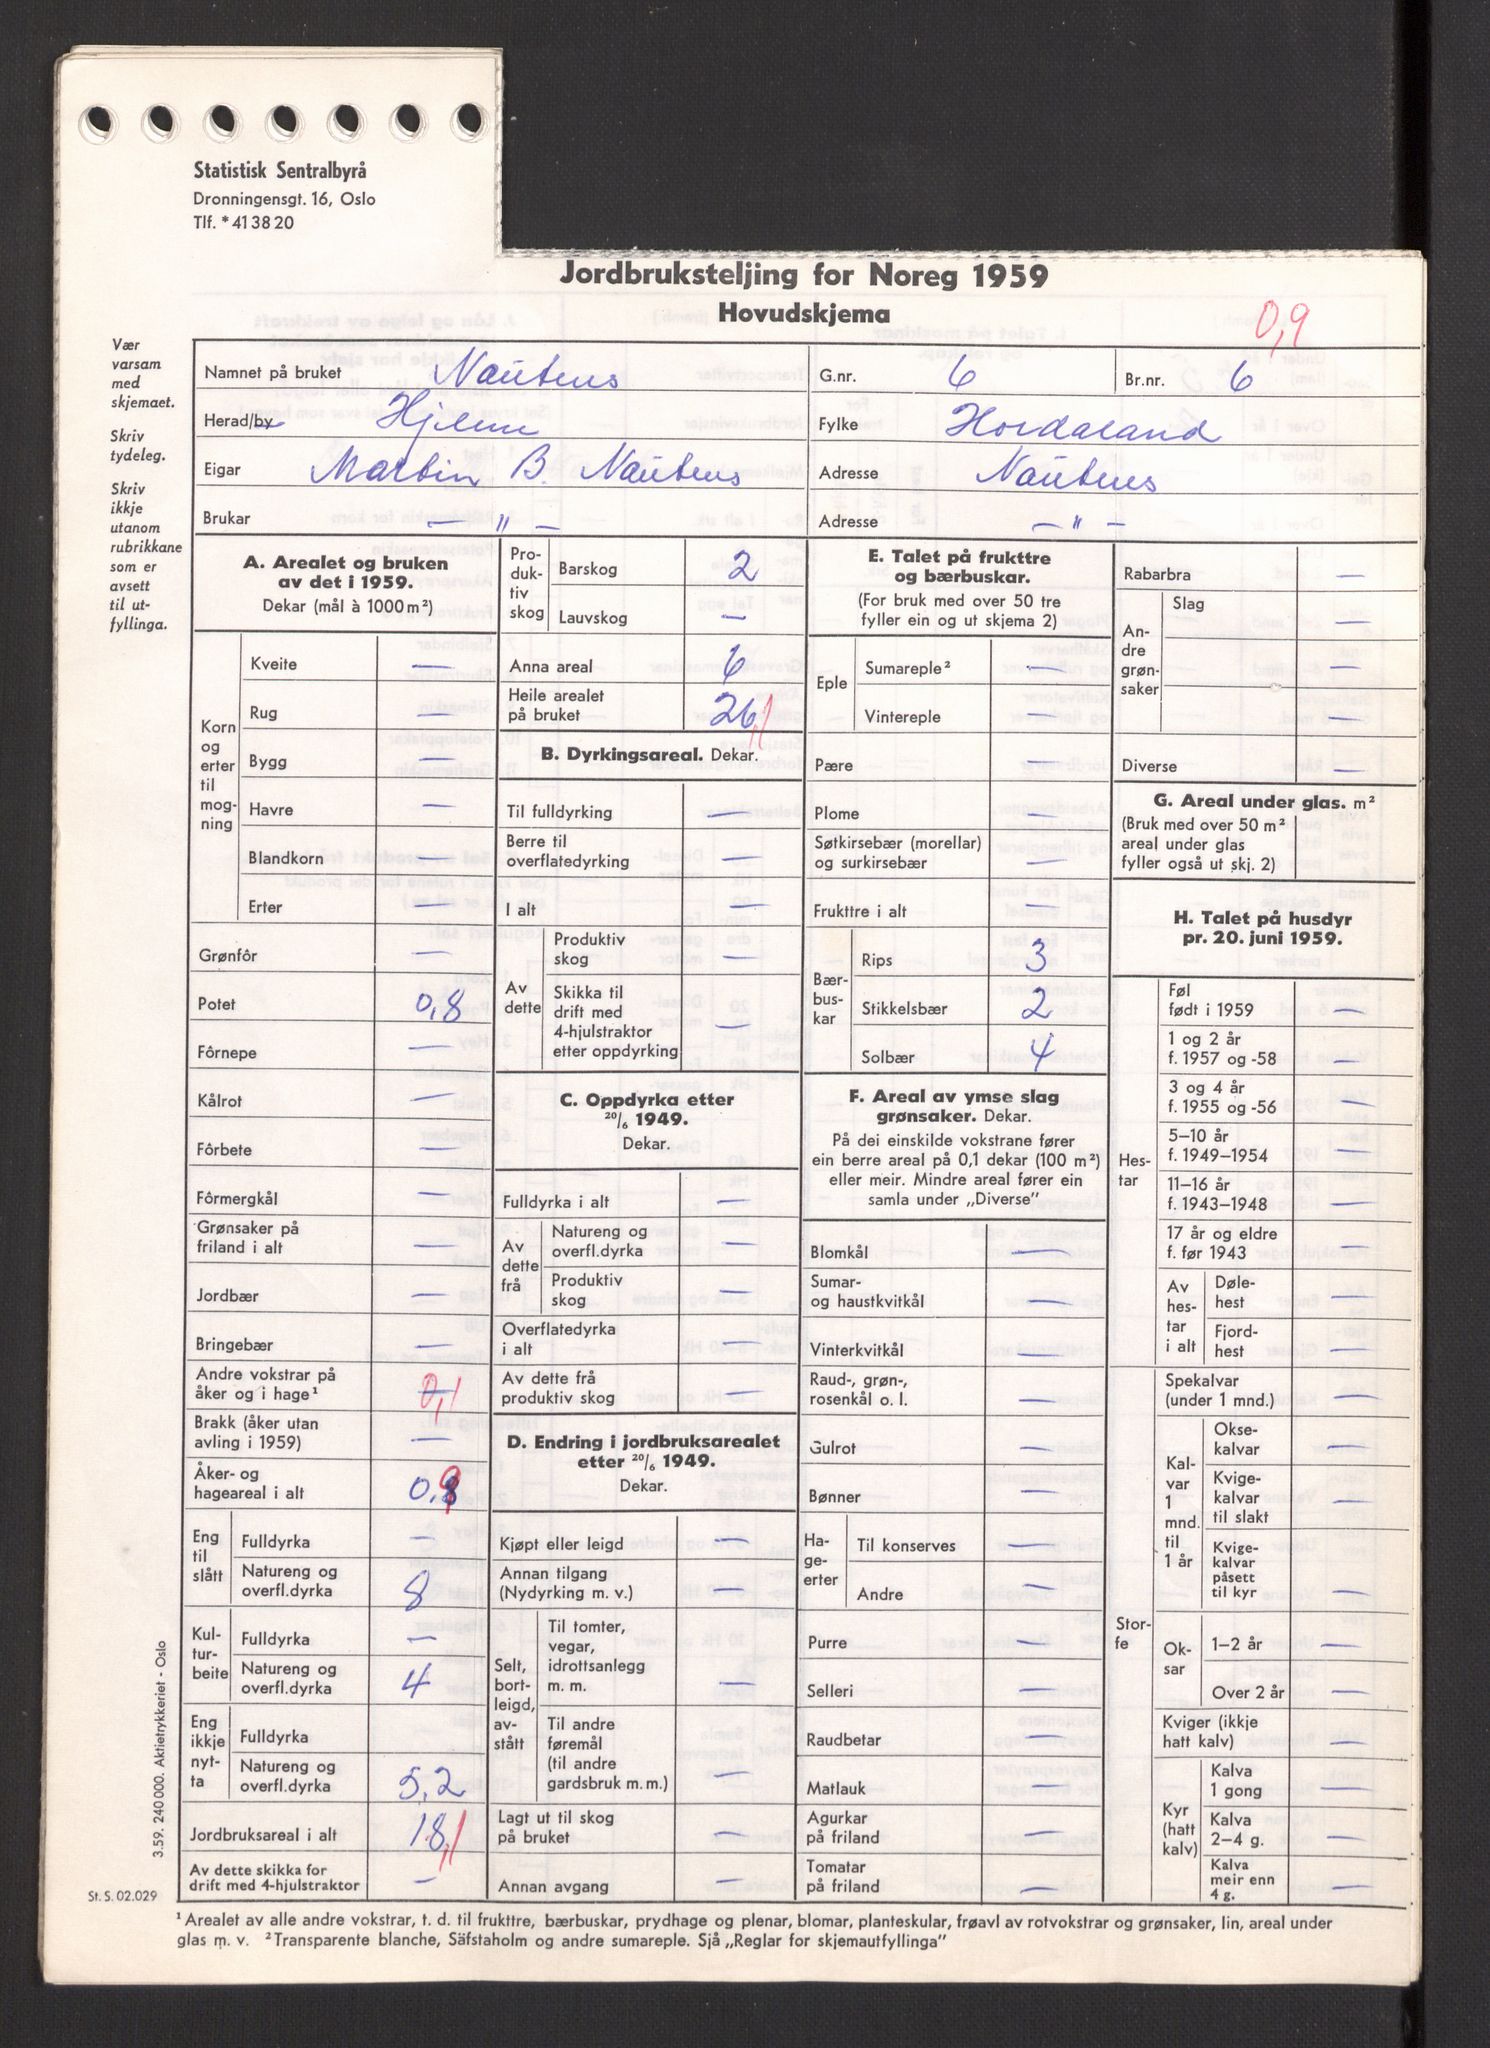 Statistisk Sentralbyrå
Dronningensgt. 16, Oslo
Tlf. *41 38 20
Jordbruksteljing for Noreg 1959
Hovudskjema
0,9
Vær
varsam
med
skjemaet.
Skriv
tydeleg.
Skriv
ikkje
utanom
rubrikkane
som er
avsett
til ut-
fyllinga.
Namnet på bruket Nautnes G.nr. 6 Br.nr. 6
Herad/by Hjelme Fylke Hordaland
Eigar Martin B. Nautnes Adresse Nautnes
Brukar — " — Adresse — " —
A. Arealet og bruken
av det i 1959.
Dekar (mål à 1000 m²)
Korn
og
erter
til
mog-
ning
Kveite —
Rug —
Bygg —
Havre —
Blandkorn —
Erter —
Grønfôr —
Potet 0,8
Fôrnepe —
Kålrot —
Fôrbete —
Fôrmergkål —
Grønsaker på
friland i alt —
Jordbær —
Bringebær —
Andre vokstrar på
åker og i hage¹ 0,1
Brakk (åker utan
avling i 1959) —
Åker- og
hageareal i alt 0,9
Eng
til
slått
Fulldyrka —
Natureng og
overfl.dyrka 8
Kul-
tur-
beite
Fulldyrka —
Natureng og
overfl.dyrka 4
Eng
ikkje
nyt-
ta
Fulldyrka
Natureng og
overfl.dyrka 5,2
Jordbruksareal i alt 18,1
Av dette skikka for
drift med 4-hjulstraktor —
Pro-
duk-
tiv
skog
Barskog 2
Lauvskog —
Anna areal 6
Heile arealet
på bruket 26,1
B. Dyrkingsareal. Dekar.
Til fulldyrking —
Berre til
overflatedyrking —
I alt —
Av
dette
Produktiv
skog —
Skikka til
drift med
4-hjulstraktor
etter oppdyrking —
C. Oppdyrka etter
20/6 1949.
Dekar.
Fulldyrka i alt —
Av
dette
frå
Natureng og
overfl.dyrka —
Produktiv
skog —
Overflatedyrka
i alt —
Av dette frå
produktiv skog —
D. Endring i jordbruksarealet
etter 20/6 1949.
Dekar.
Kjøpt eller leigd —
Annan tilgang
(Nydyrking m. v.) —
Selt,
bort-
leigd,
av-
stått
Til tomter,
vegar,
idrottsanlegg
m. m. —
Til andre
føremål
(til andre
gardsbruk m. m.) —
Lagt ut til skog
på bruket —
Annan avgang —
E. Talet på frukttre
og bærbuskar.
(For bruk med over 50 tre
fyller ein og ut skjema 2)
Eple
Sumareple² —
Vintereple —
Pære —
Plome —
Søtkirsebær (morellar)
og surkirsebær —
Frukttre i alt —
Bær-
bus-
kar
Rips 3
Stikkelsbær 2
Solbær 4
F. Areal av ymse slag
grønsaker. Dekar.
På dei einskilde vokstrane fører
ein berre areal på 0,1 dekar (100 m²)
eller meir. Mindre areal fører ein
samla under „Diverse”
Blomkål —
Sumar-
og haustkvitkål —
Vinterkvitkål —
Raud-, grøn-,
rosenkål o. l. —
Gulrot —
Bønner —
Ha-
ge-
erter
Til konserves —
Andre —
Purre —
Selleri —
Raudbetar —
Matlauk —
Agurkar
på friland —
Tomatar
på friland —
Rabarbra —
An-
dre
grøn-
saker
Slag —
—
—
Diverse —
G. Areal under glas. m²
(Bruk med over 50 m²
areal under glas
fyller også ut skj. 2)
H. Talet på husdyr
pr. 20. juni 1959.
Hes-
tar
Føl
født i 1959 —
1 og 2 år
f. 1957 og -58 —
3 og 4 år
f. 1955 og -56 —
5–10 år
f. 1949–1954 —
11–16 år
f. 1943–1948 —
17 år og eldre
f. før 1943 —
Av
hes-
tar
i alt
Døle-
hest —
Fjord-
hest —
Stor-
fe
Spekalvar
(under 1 mnd.) —
Kal-
var
1
mnd.
til
1 år
Okse-
kalvar —
Kvige-
kalvar
til slakt —
Kvige-
kalvar
påsett
til kyr —
Ok-
sar
1–2 år —
Over 2 år —
Kviger (ikkje
hatt kalv) —
Kyr
(hatt
kalv)
Kalva
1 gong —
Kalva
2–4 g. —
Kalva
meir enn
4 g. —
3.59. 240 000. Aktietrykkeriet - Oslo
St. S. 02.029
¹ Arealet av alle andre vokstrar, t. d. til frukttre, bærbuskar, prydhage og plenar, blomar, planteskular, frøavl av rotvokstrar og grønsaker, lin, areal under
glas m. v. ² Transparente blanche, Säfstaholm og andre sumareple. Sjå „Reglar for skjemautfyllinga”